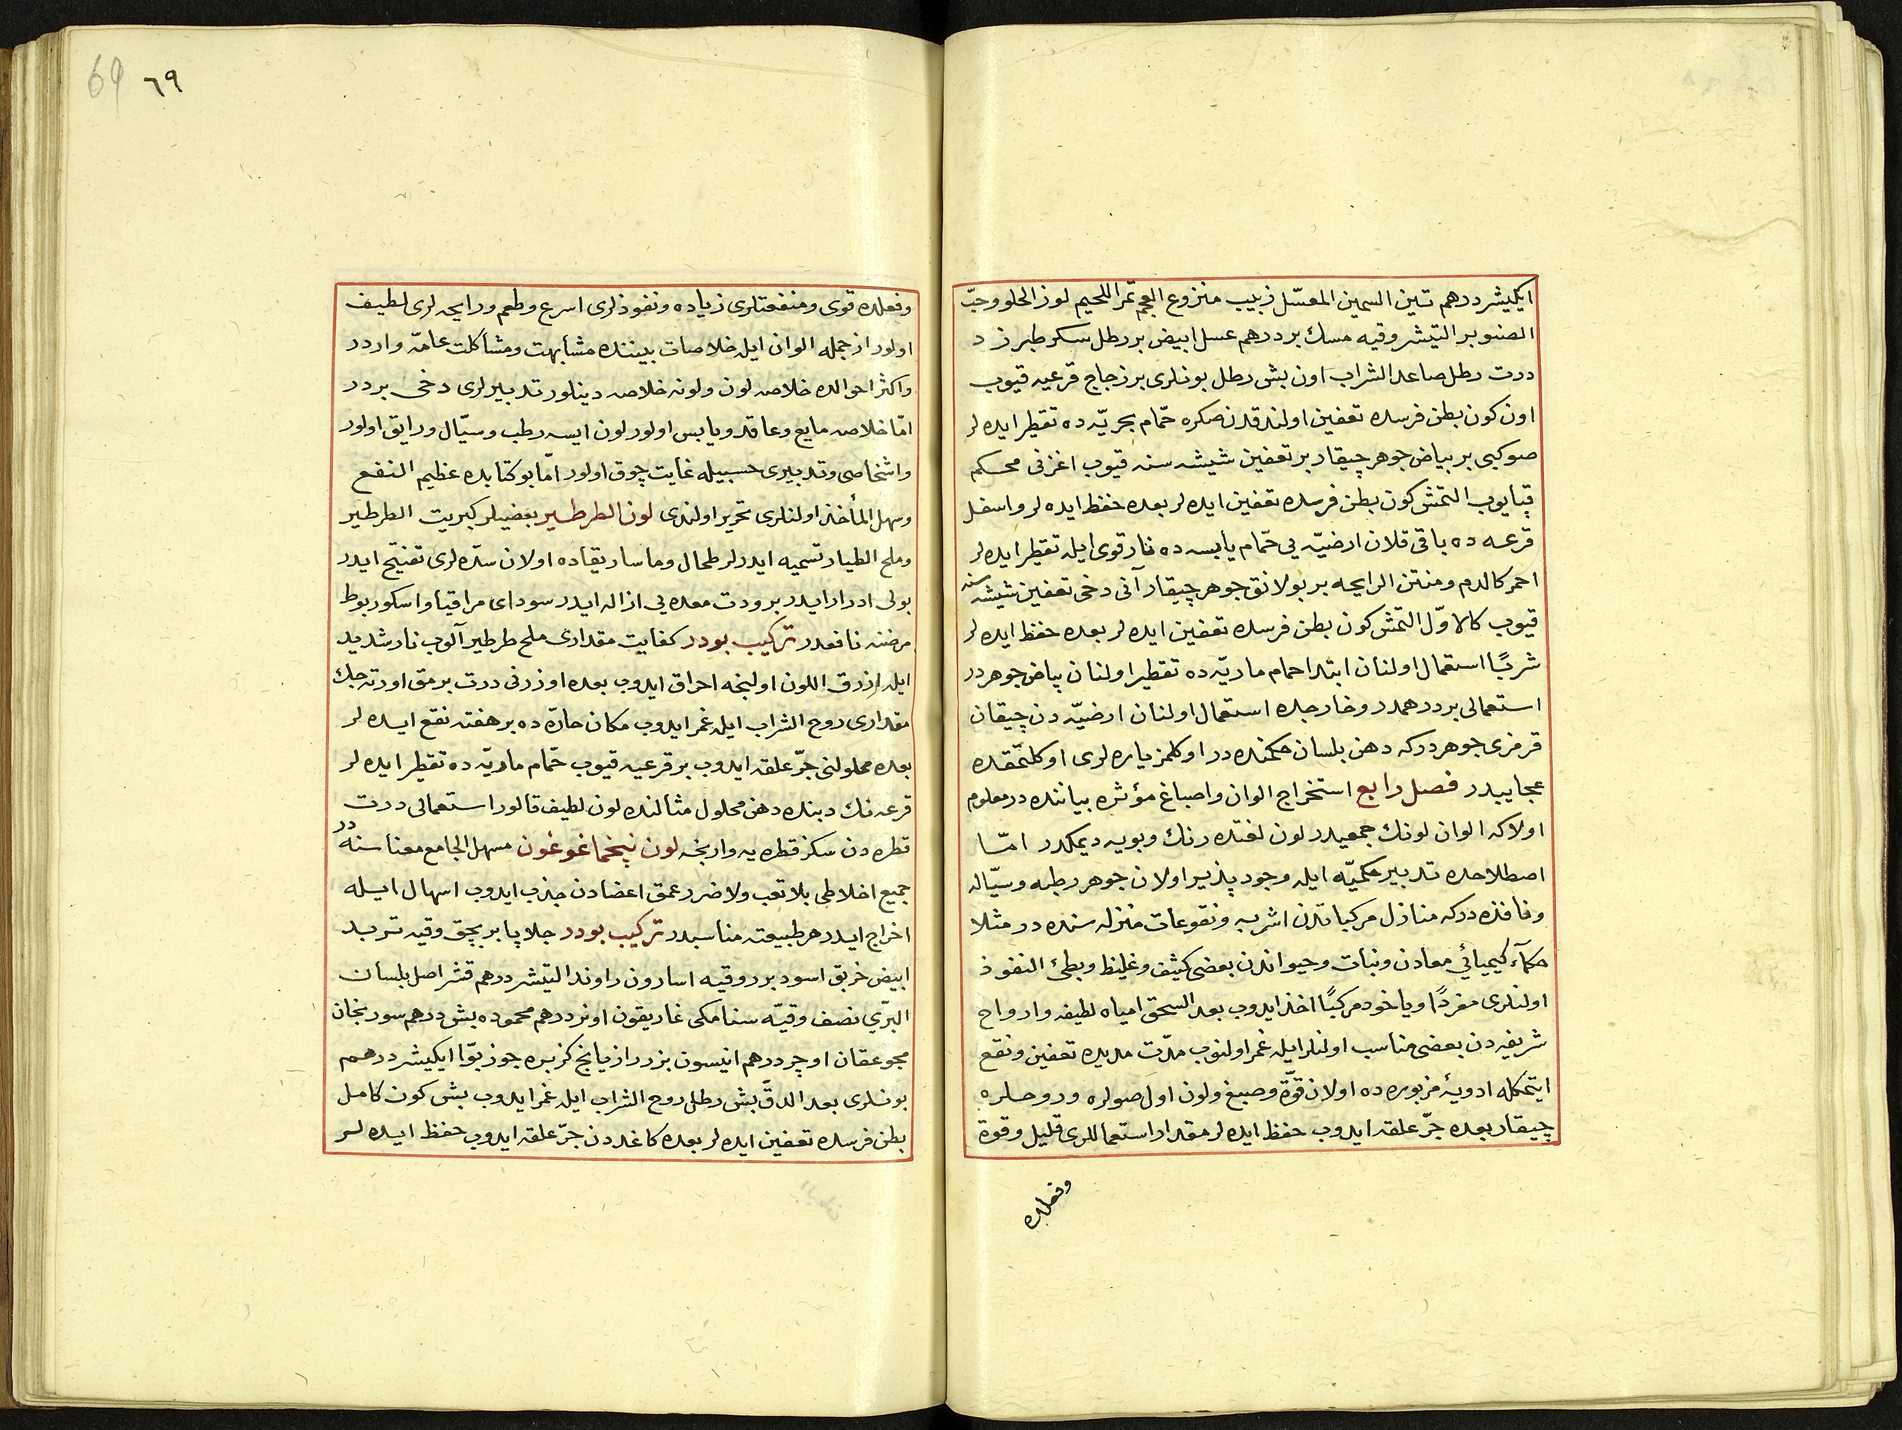 ایکیشر درهم تین السمین المعسّل زبیب منزوع العجم تمر اللحیم لوز الحلو وحبّ
الصنوبر التیشر وقیه مسك بر درهم عسل ابیض بر رطل سکر طبرزد
درت رطل صاعد الشراب اون بش رطل بونلری بر زجاج قرعیه قیوب
اون کون بطن فرسده تعفین اولندقدن صکره حمّام بحریّه ده تقطیر ایده لر
صو کبی بر بیاض جوهر چیقار بر تعفین شیشه سنه قیوب اغزنی محکم
قپایوب التمش کون بطن فرسده تعفین ایده لر بعده حفظ ایده لر واسفل
قرعه ده باقی قلان ارضیّه یی حمّام یابسه ده نار قوی ایله تقطیر ایده لر
احمر کالدم ومنتن الرایحه بر بولانق جوهر چیقار آنی دخی تعفین شیشه سنه
قیوب کالاوّل التمش کون بطن فرسده تعفین ایده لر بعده حفظ ایده لر
شربًا استعمال اولنان ابتدا حمام ماریّه ده تقطیر اولنان بیاض جوهردر
استعمالی بر درهمدر وخارجده استعمال اولنان ارضیّه دن چیقان
قرمزی جوهردرکه دهن بلسان حکمنده در اوکلمز یاره لری اوکلتمقده
عجایبدر فصل رابع استخراج الوان واصباغ مؤثره بیاننده در معلوم
اولاکه الوان لونك جمعیدر لون لغتده رنك وبویه دیمکدر امّا
اصطلاحده تدبیر حکمیّه ایله وجود پذیر اولان جوهر رطبه وسیّاله
ونافذه درکه منازل مرکباتدن اشربه ونقوعات منزله سنده در مثلا
حکمآء کیمیائی معادن ونبات وحیواندن بعضی کثیف وغلیظ وبطئ النفوذ
اولنلری مفردًا ویاخود مرکبًا اخذ ایدوب بعد السحق امیاه لطیفه وارواح
شریفه دن بعضی مناسب اولنلر ایله غمر اولنوب مدّت مدیده تعفین ونقع
ایتمکله ادویهٔ مزبوره ده اولان قوّة وصبغ ولون اول صولره وروحلره
چیقار بعده جرّ علقه ایدوب حفظ ایده لر مقدار استعماللری قلیل وقوة
وفعلده
٦٩
69
وفعلده قوی ومنفعتلری زیاده ونفوذلری اسرع وطعم ورایحه لری لطیف
اولور از جمله الوان ایله خلاصات بیننده مشابهت ومشاکلت عامّه واردر
واکثر احوالده خلاصه لون ولونه خلاصه دینلور تدبیرلری دخی بردر
امّا خلاصه مایع وعاقد ویابس اولور لون ایسه رطب وسیّال ورایق اولور
واشخاصی وتدبیری حسبیله غایت چوق اولور امّا بو کتابده عظیم النفع
وسهل المأخذ اولنلری تحریر اولندی لون الطرطیر بعضیلر کبریت الطرطیر
وملح الطیار تسمیه ایدرلر طحال وماساریقاده اولان سدّه لری تفتیح ایدر
بولی ادرار ایدر برودت معده یی ازاله ایدر سودای مراقیا واسکوربوط
مرضنه نافعدر ترکیب بودر کفایت مقداری ملح طرطیر آلوب نار شدید
ایله ازرق اللون اولنجه احراق ایدوب بعده اوزرنی درت برمق اورته جك
مقداری روح الشراب ایله غمر ایدوب مکان حارّه ده بر هفته نقع ایده لر
بعده محلولنی جرّ علقه ایدوب بر قرعیه قیوب حمّام ماریّه ده تقطیر ایده لر
قرعه نك دبنده دهن محلول مثالنده لون لطیف قالور استعمالی درت
قطره دن سکز قطره یه وارنجه لون پنخماغوغون مسهل الجامع معناسنه در
جمیع اخلاطی بلا تعب ولا ضرر عمق اعضادن جذب ایدوب اسهال ایله
اخراج ایدر هر طبیعته مناسبدر ترکیب بودر جلاپا بر بچق وقیه تربد
ابیض خربق اسود بر وقیه اسارون راوند التیشر درهم قشر اصل بلسان
البرّی نصف وقیّه سنامکی غاریقون اونر درهم محموده بش درهم سورنجان
مجوعقان اوچر درهم انیسون بزر رازیانج کزبره جوز بوّا ایکیشر درهم
بونلری بعد الدقّ بش رطل روح الشراب ایله غمر ایدوب بش کون کامل
بطن فرسده تعفین ایده لر بعده کاغددن جرّ علقه ایدوب حفظ ایده لر